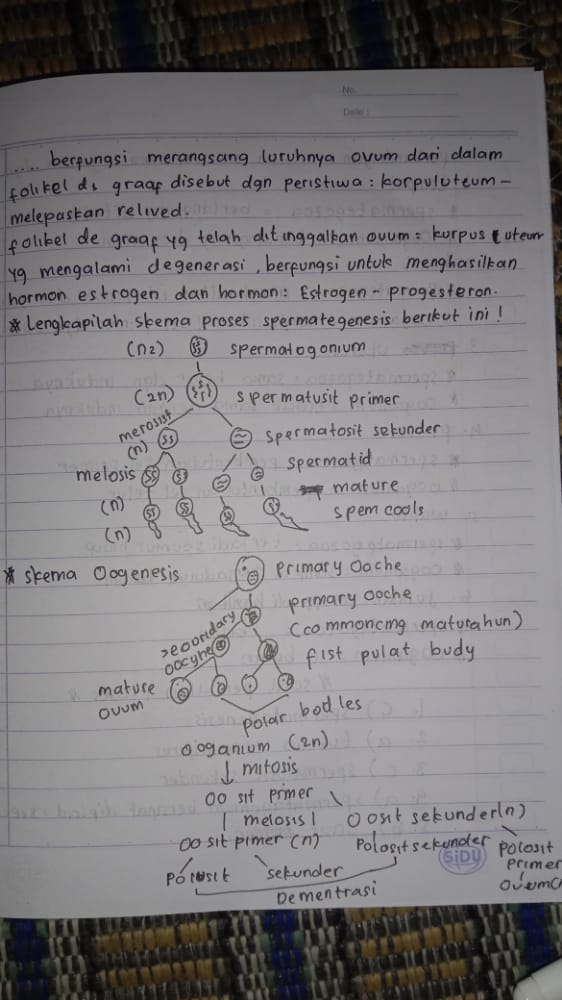 No.
Date :
.... berfungsi merangsang luruhnya ovum dari dalam
folikel ds graaf disebut dgn peristiwa : korpuluteum -
melepaskan relived.
folikel de graaf yg telah ditinggalkan ovum = kurpus luteum
yg mengalami degenerasi, berfungsi untuk menghasilkan
hormon estrogen dan hormon : Estrogen - progesteron.
* Lengkapilah skema proses spermategenesis berikut ini !
(n2) spermatogonium
(2n) spermatusit primer
merosist
(n) spermatosit sekunder
melosis spermatid
(n) mature
(n) spem cools
* Skema Oogenesis primary Ooche
primary ooche
seooridary (commoncing maturahun)
oocyhe fist pulat budy
mature
ovum
polar bodles
ooganium (2n)
mitosis
oo sit primer
melosis I oosit sekunder (n)
oo sit pimer (n) Polosit sekunder polosit
SiDU primer
polosit sekunder ovum
Dementrasi